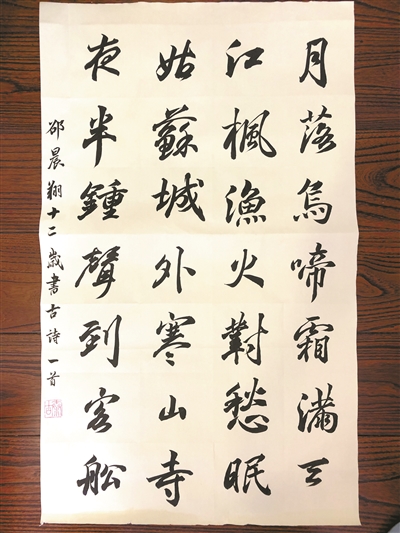 月落烏啼霜滿天
江楓漁火對愁眠
姑蘇城外寒山寺
夜半鍾聲到客船
邵晨翔十二歲書古詩一首